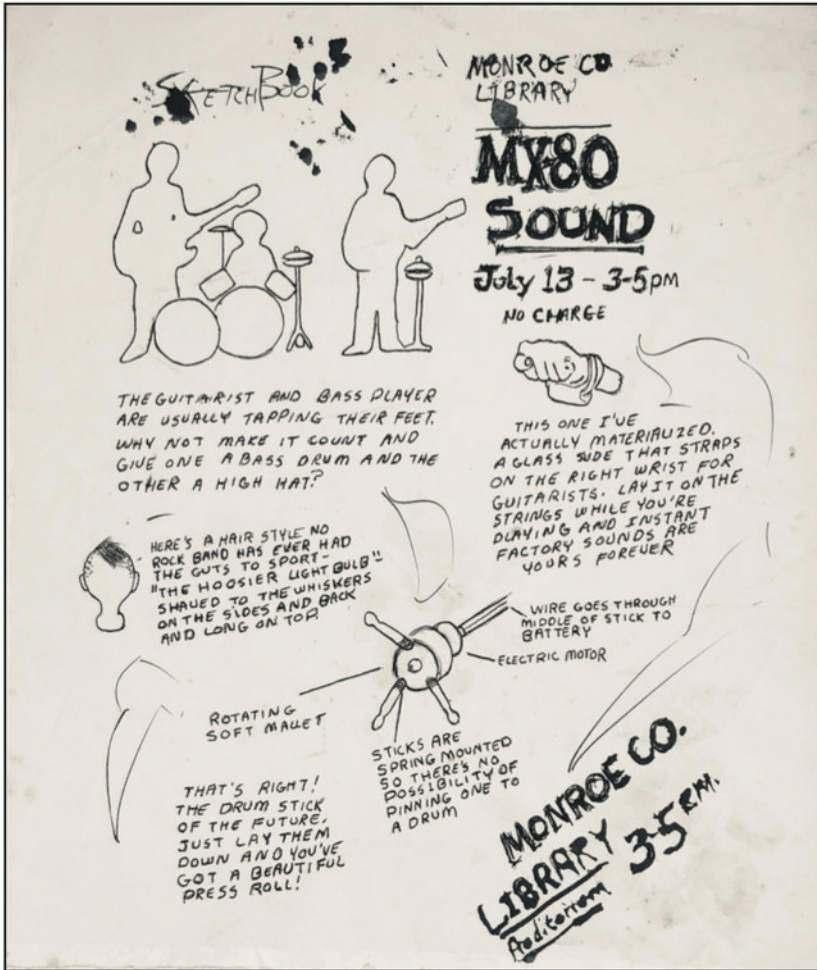 SKETCHBOOK
MONROE CO
LIBRARY
MX-80
SOUND
July 13 - 3-5pm
NO CHARGE
THE GUITARIST AND BASS PLAYER
ARE USUALLY TAPPING THEIR FEET.
WHY NOT MAKE IT COUNT AND
GIVE ONE A BASS DRUM AND THE
OTHER A HIGH HAT?
THIS ONE I'VE
ACTUALLY MATERIALIZED.
A GLASS SLIDE THAT STRAPS
ON THE RIGHT WRIST FOR
GUITARISTS. LAY IT ON THE
STRINGS WHILE YOU'RE
PLAYING AND INSTANT
FACTORY SOUNDS ARE
YOURS FOREVER
HERE'S A HAIR STYLE NO
ROCK BAND HAS EVER HAD
THE GUTS TO SPORT-
"THE HOOSIER LIGHT BULB"-
SHAVED TO THE WHISKERS
ON THE SIDES AND BACK
AND LONG ON TOP.
WIRE GOES THROUGH
MIDDLE OF STICK TO
BATTERY
ELECTRIC MOTOR
ROTATING
SOFT MALLET
STICKS ARE
SPRING MOUNTED
SO THERE'S NO
POSSIBILITY OF
PINNING ONE TO
A DRUM
THAT'S RIGHT!
THE DRUM STICK
OF THE FUTURE.
JUST LAY THEM
DOWN AND YOU'VE
GOT A BEAUTIFUL
PRESS ROLL!
MONROE CO.
LIBRARY 3-5 P.M.
Auditorium